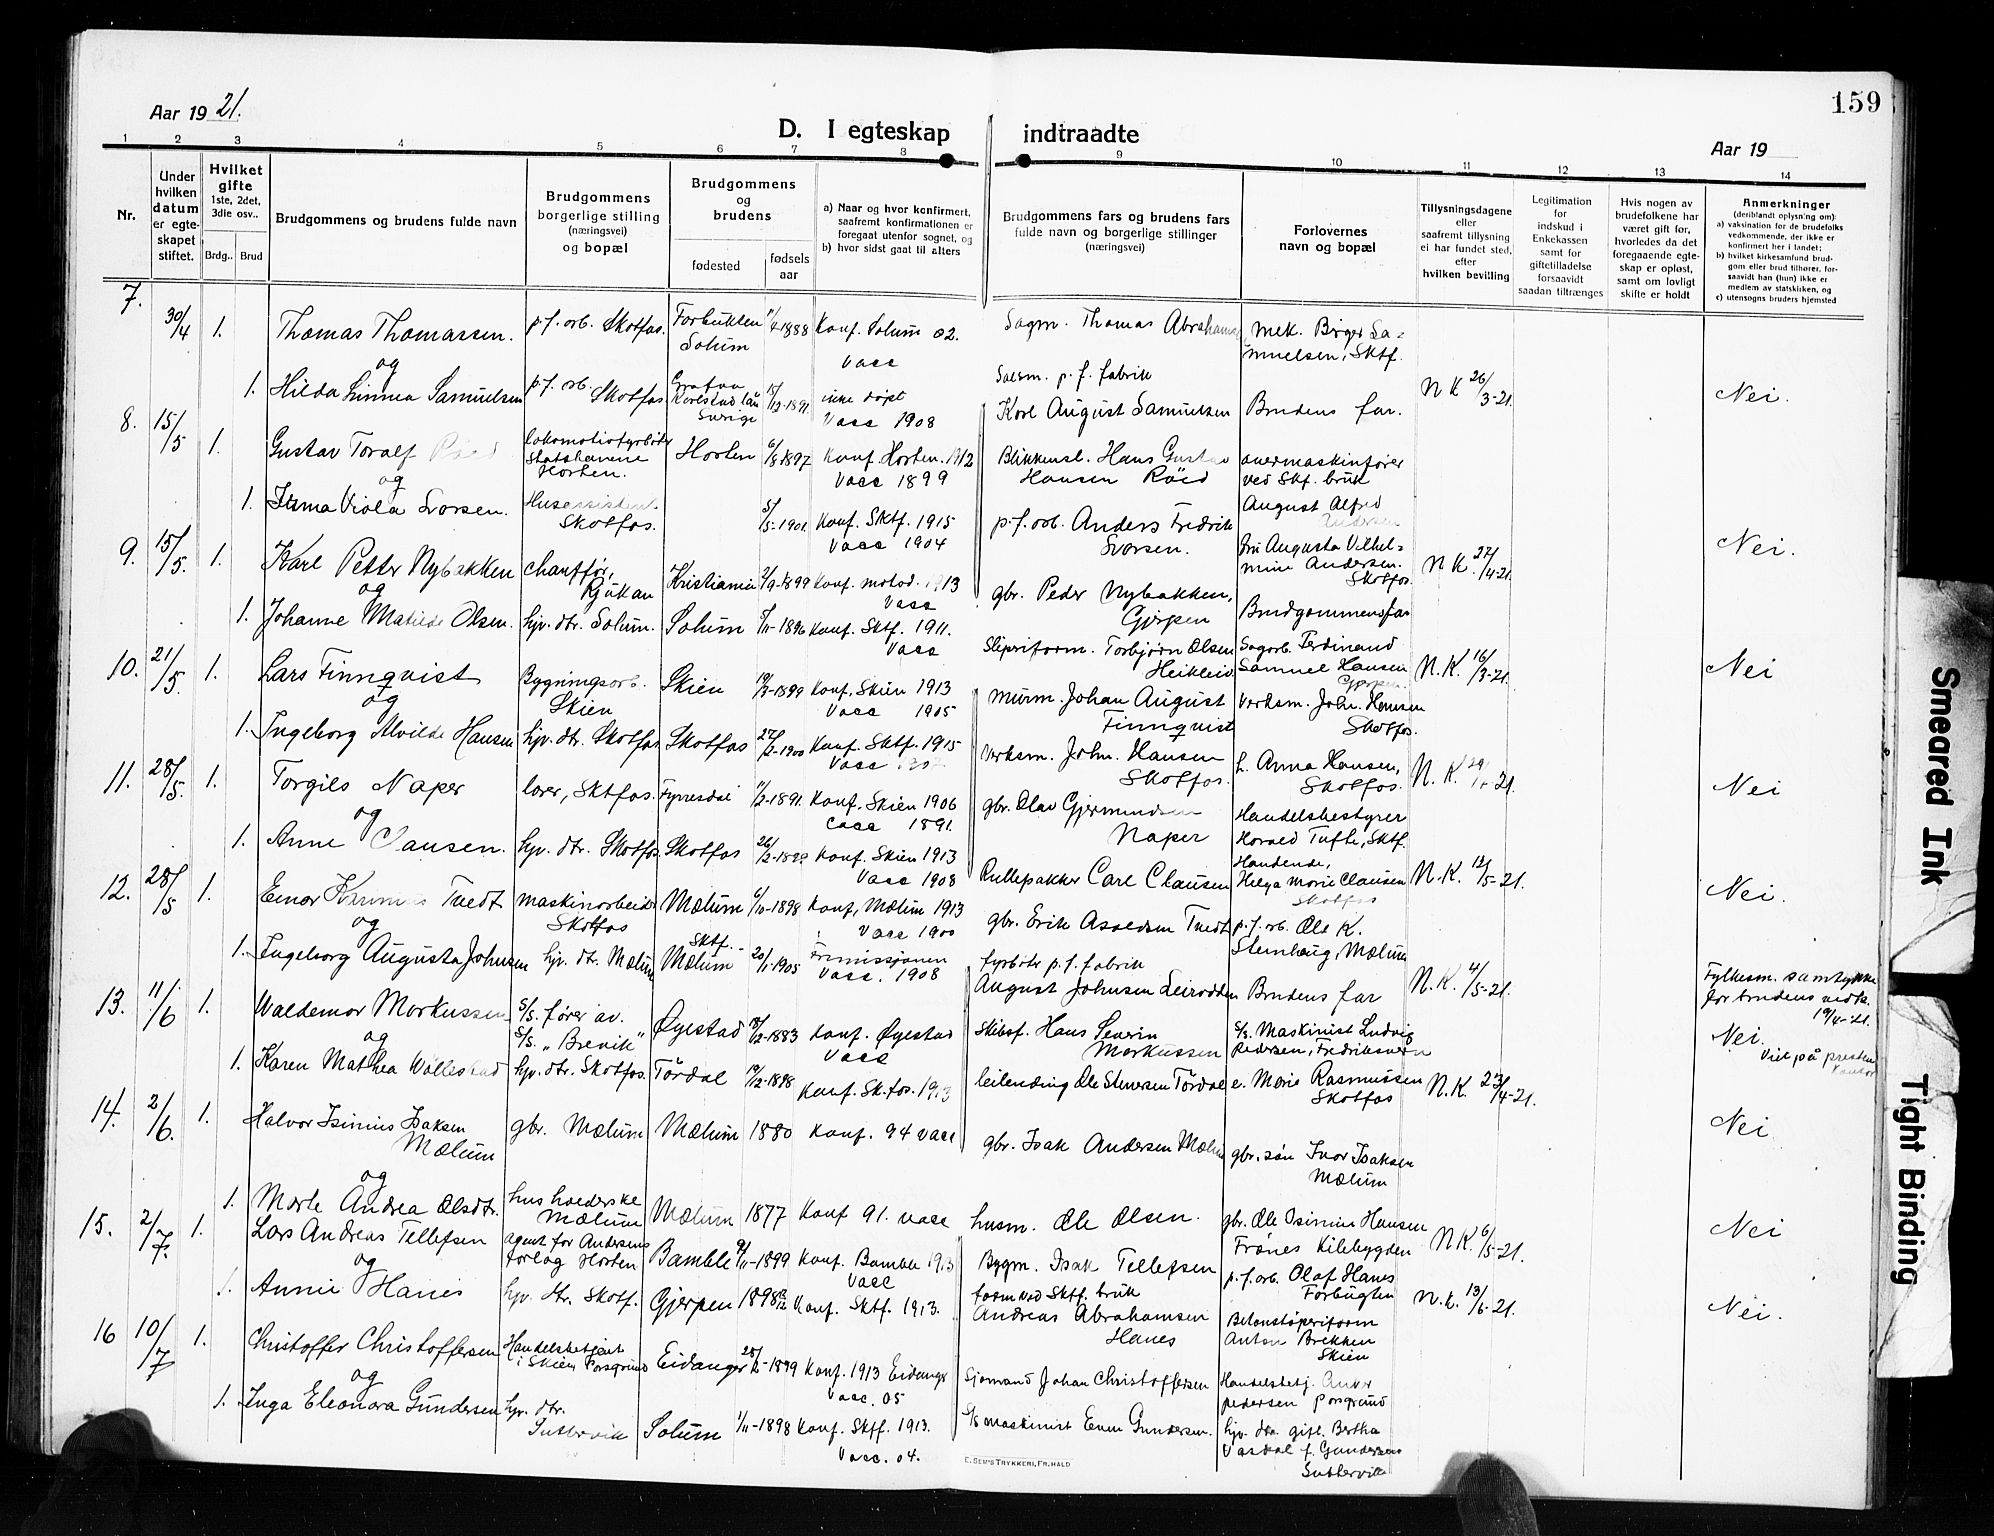 159
Aar 1921.
D. I egteskap indtraadte
Aar 19
1 2 3 4 5 6 7 8 9 10 11 12 13 14
Nr.
Under hvilken datum er egteskapet stiftet.
Hvilket gifte 1ste, 2det, 3die osv..
Brdg.. Brud
Brudgommens og brudens fulde navn
Brudgommens borgerlige stilling (næringsvei) og bopæl
Brudgommens og brudens
fødested
fødsels aar
a) Naar og hvor konfirmert, saafremt konfirmationen er foregaat utenfor sognet, og
b) hvor sidst gaat til alters
Brudgommens fars og brudens fars fulde navn og borgerlige stillinger (næringsvei)
Forlovernes navn og bopæl
Tillysningsdagene eller saafremt tillysning ei har fundet sted, efter hvilken bevilling
Legitimation for indskud i Enkekassen samt for giftetilladelse forsaavidt saadan tiltrænges
Hvis nogen av brudefolkene har været gift før, hvorledes da det foregaaende egteskap er opløst, samt om lovligt skifte er holdt
Anmerkninger (deriblandt oplysning om):
a) vaksination for de brudefolks vedkommende, der ikke er konfirmert her i landet;
b) hvilket kirkesamfund brudgom eller brud tilhører, forsaavidt han (hun) ikke er medlem av statskirken, og
c) utensogns bruders hjemsted
7. 30/4 1. Thomas Thomassen. p.f. arb. Skotfos. Solum 1888 Konf. Solum 02. Vacc Sagm. Thomas mek. Birger Samuelsen, Sktf.
og
1. Hilda Linnea Samuelsen p.f. arb. Skotfos Sverige 15/12-1891. ikke døpt Vacc 1908 p.f. fabrik Karl August Samuelsen Brudens far. N K 26/3-21. Nei.
8. 15/5 1. Gustav Toralf Horten. Horten 6/8-1897 Konf. Horten. 1912 Vacc 1899 Blikkensl. Hans Gustav Hansen Röed ved Skf. bruk August Alfred
og
1. Irma Viola Larsen. Skotfos. 5/5-1901 Konf. Sktf. 1915 Vacc 1904 p.f. arb. Anders Fredrik Larsen. fru Augusta Vilhelmine Andersen. Skotfos N K. 27/4-21. Nei.
9. 15/5. 1. Karl Petter Nybakken chauffør, Rjukan Kristiania 2/9-1899 Konf. 1913 Vacc gbr. Peder Nybakken, Gjerpen Brudgommens far
og
1. Johanne Matilde Olsen. hjv. dtr. Solum. Solum 1896 Konf. Sktf. 1911. Vacc Sliperiform. Torbjørn Olsen Heikleid Sagarb. Ferdinand Samuel Hansen Gjerpen. N.K. 16/3-21. Nei
10. 21/5. 1. Lars Finnqvist Bygningsarb. Skien Skien 19/3-1899 Konf. Skien 1913 Vacc 1905 Murm. Johan August Finnqvist Verksm. Joh. Hansen Skotfos.
og
1. Ingeborg Alvilde Hansen hjv. dtr. Skotfos Skotfos 1900 Konf. Sktf. 1915 Vacc Verksm. Joh. Hansen Skotfos. Anna Hansen, Skotfos. N.K. Nei
11. 28/5. 1. Torgils Naper lærer, Sktfos. Fyresdal 11/2-1891. Konf. Skien 1906 Vacc 1891. gbr. Olav Gjermundsen Naper Handelsbestyrer Harald Tufte, Sktf.
og
1. Anne Clausen. hjv. dtr. Skotfos Skotfos Konf. Skien 1913 Vacc 1908 Rullepakker Carl Clausen Helga Marie Clausen Skotfos N.K. 12/5-21. Nei.
12. 28/5 1. Einar Tvedt maskinarbeider Skotfos Mælum 6/11-1898 Konf. Mælum 1913 Vacc 1900 gbr. Erik Tvedt p.f. arb. Ole K. Stenhaug, Mælum
og
1. Ingeborg Augusta Johnsen hjv. dtr. Mælum Sktf. Mælum 20/1-1905 Frimissjonen Vacc. 1908 fyrbøter p.f. fabrik August Johnsen Leirodden Brudens far N.K. 4/5-21. Fylkesm. samtykke for brudens vedk. 19/4-21.
13. 11/6 1. Waldemar Markussen S/S. fører av. S/S. „Brevik" Øyestad 1883 Konf. Øyestad Vacc Skibsf. Hans Severin Markussen S/S. Maskinist Ludvig Pedersen, Fredriksvern Nei. Viet på prestens kontor
og
1. Karen Mathea hjv. dtr. Skotfos. Tördal 19/12-1898 Konf. Sktfos. 1913 leilending Ole Stenersen Tördal e. Marie Rasmussen Skotfos N.K. 23/4-21.
14. 2/6. 1. Halvor Isinius Isaksen Mælum gbr. Mælum Mælum 1880 Konf. 94 vacc gbr. Isak Andersen Mælum gbr. søn Ivar Isaksen Mælum Nei
og
1. Marte Andrea Olsdtr. husholderske Mælum Mælum 1877 Konf 91. vacc husm. Ole Olsen. gbr. Ole Isinius Hansen Frönes Kilebygden N K. 6/5-21. Nei
15. 2/7. 1. Lars Andreas Tellefsen agent for Andersens forlag Horten Bamble 9/11-1899 Konf. Bamble 1913 Vacc Bygm. Isak Tellefsen p.f. arb. Olaf Hanes
og
1. Annie Hanes hjv. dtr. Sktf. Gjerpen 1898 Konf. Sktf. 1913. form ved Sktf. bruk Andreas Abrahamsen Hanes Anton Brekken Skien N.K. 13/6-21. Nei.
16 10/7 1. Christoffer Christoffersen Handelsbetjent i Skien Porsgrund Eidanger 1899 Konf. 1913 Eidanger Vacc. 05 Sjømand Johan Christoffersen Handelsbetj. Pedersen Porsgrund
og
1. Inga Eleonora Gundersen hjv. dtr. Solum 1/11-1898 Konf. Sktf. 1913. Vacc. 04. S/S maskinist Gundersen. hjv. dtr. gift. Bertha f. Gundersen
E. SEM'S TRYKKERI, FR.HALD
Smeared Ink
Tight Binding